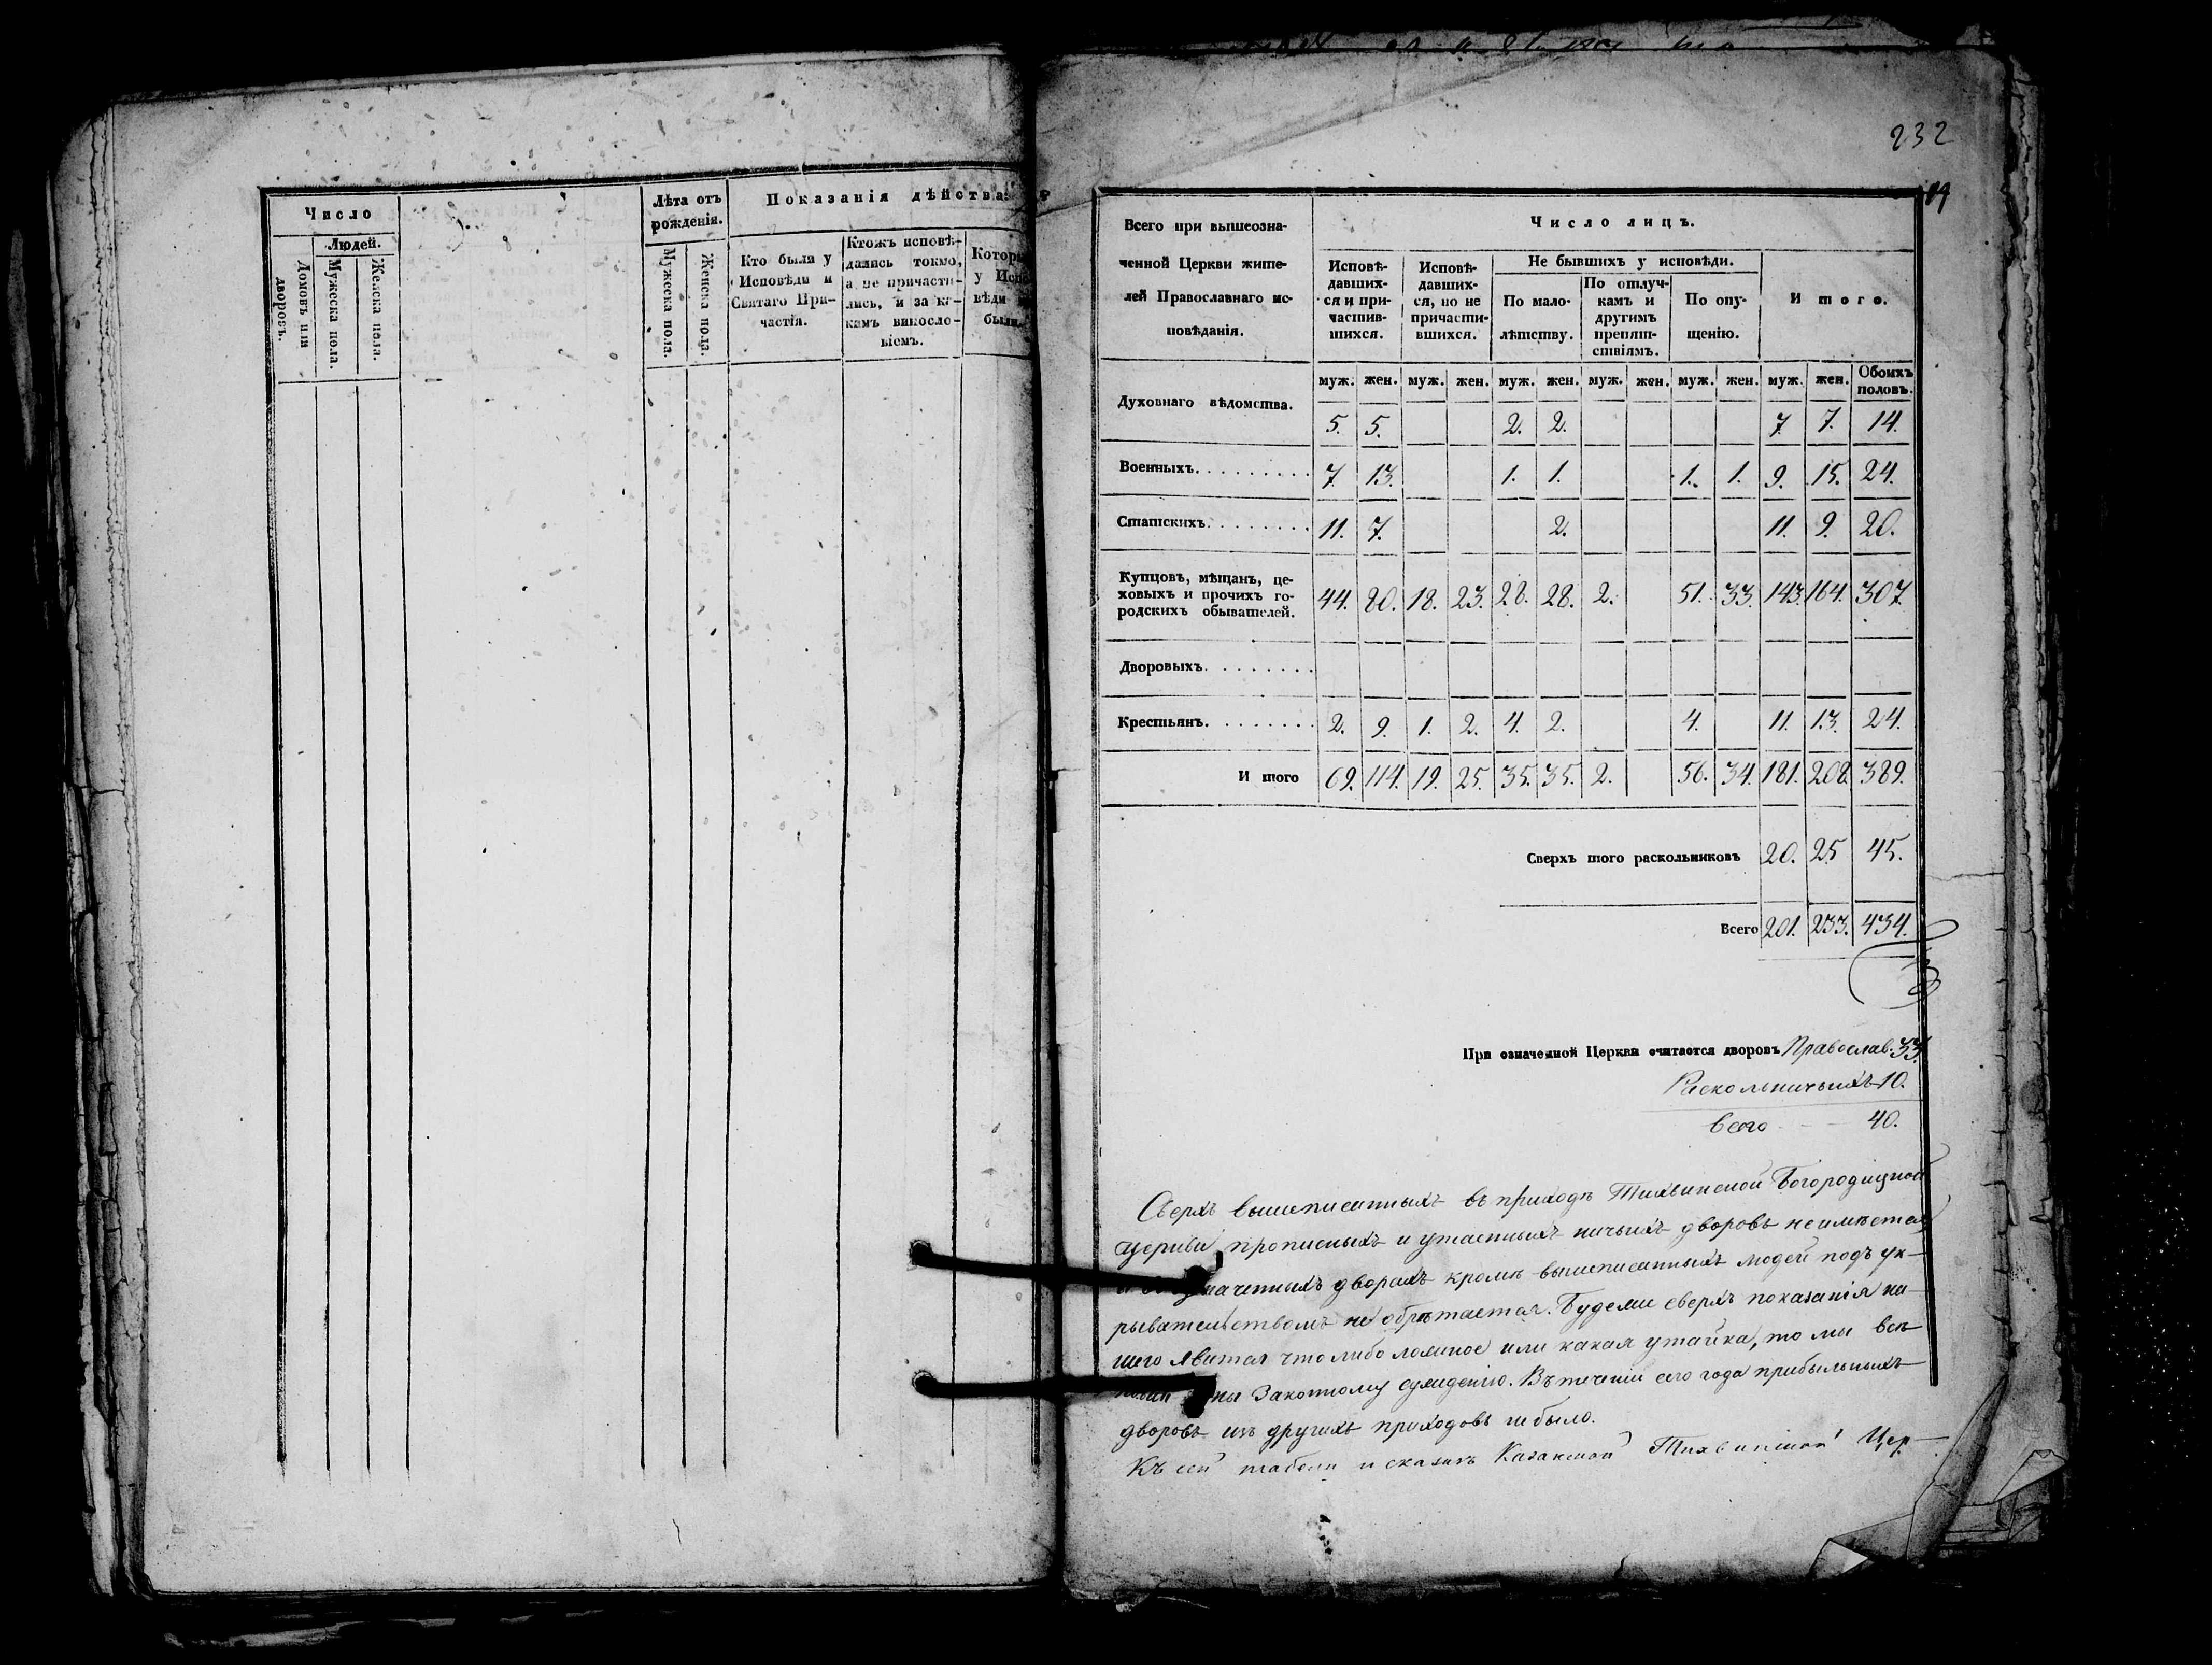 Число
Людей.
Домовъ или дворовъ.
Мужеска пола.
Женска пола.
Лѣта отъ
рожденія.
Мужеска пола.
Женска пола.
Показанія дѣйства:
Кто были у
Исповѣди и
Святаго При-
частія.
Ктожъ исповѣ-
дались токмо,
а не причасти-
лись, и за ка-
кимъ винсло-
віемъ.
у
были
232
Всего при вышеозна-
ченной Церкви жите-
лей Православнаго ис-
повѣданія.
Число лицъ.
Исповѣ-
давших-
ся и при-
частив-
шихся.
Исповѣ-
давших-
ся, но не
причасти-
вшихся.
Не бывшихъ у исповѣди.
По мало-
лѣтству.
По отлуч-
камъ и
другимъ
препят-
ствіямъ.
По опу-
щенію.
Итого.
муж. жен. муж. жен. муж. жен. муж. жен. муж. жен. муж. жен. Обоихъ половъ.
Духовнаго вѣдомства. 5. 5. 2. 2. 7. 7. 14.
Военныхъ. 7. 13. 1. 1. 1. 1. 9. 15. 24.
Статскихъ. 11. 7. 2. 11. 9. 20.
Купцовъ, мѣщанъ, це-
ховыхъ и прочихъ го-
родскихъ обывателей. 44. 80. 18. 23. 28. 28. 2. 51. 33. 143. 164. 307.
Дворовыхъ.
Крестьянъ. 2. 9. 1. 2. 4. 2. 4. 11. 13. 24.
Итого 69. 114. 19. 25. 35. 35. 2. 56. 34. 181. 208. 389.
Сверхъ того раскольниковъ 20. 25 45.
Всего 201. 233. 434.
При означенной Церкви считается дворовъ Православ.
Раскольничьихъ 10.
всего 40.
Сверхъ вышеписанныхъ въ приходѣ Тихвинской Богородицкой
церкви прописныхъ и утаенныхъ ничьихъ дворовъ неимѣется
дворахъ кромѣ вышеписанныхъ людей подъ ук-
рывательствомъ не обрѣтается. Будеже сверхъ показанія на-
шего явится что либо ложное или какая утайка, то мы всѣ
Законному сужденію. Въ теченіи сего года прибыльныхъ
дворовъ изъ другихъ приходовъ не было.
Къ сей табели и сказкѣ Казанской Тихвинской Цер-